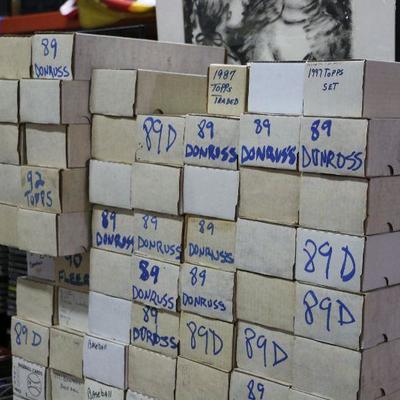 89
DONRUSS
1987
TOPPS
TRADED
1997 TOPPS
SET
89D
89
DONRUSS
89
DONRUSS
89
DONRUSS
92
TOPPS
89
DONRUSS
89
DONRUSS
89
DONRUSS
89D
90
FLEER
89
DONRUSS
89
DONRUSS
89D
89
DONRUSS
89D
89D
89D
BASEBALL
BASEBALL
89